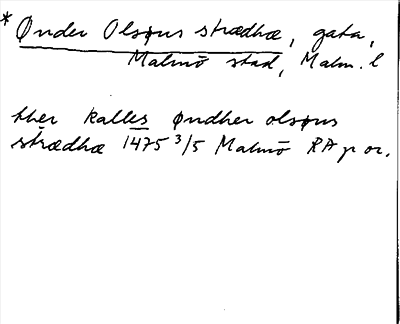 * Ønder Olsøns strædhæ, gata,
Malmö stad, Malm. l
ther kalles øndher olsøns
strædhæ 1475 3/5 Malmö RA p or.